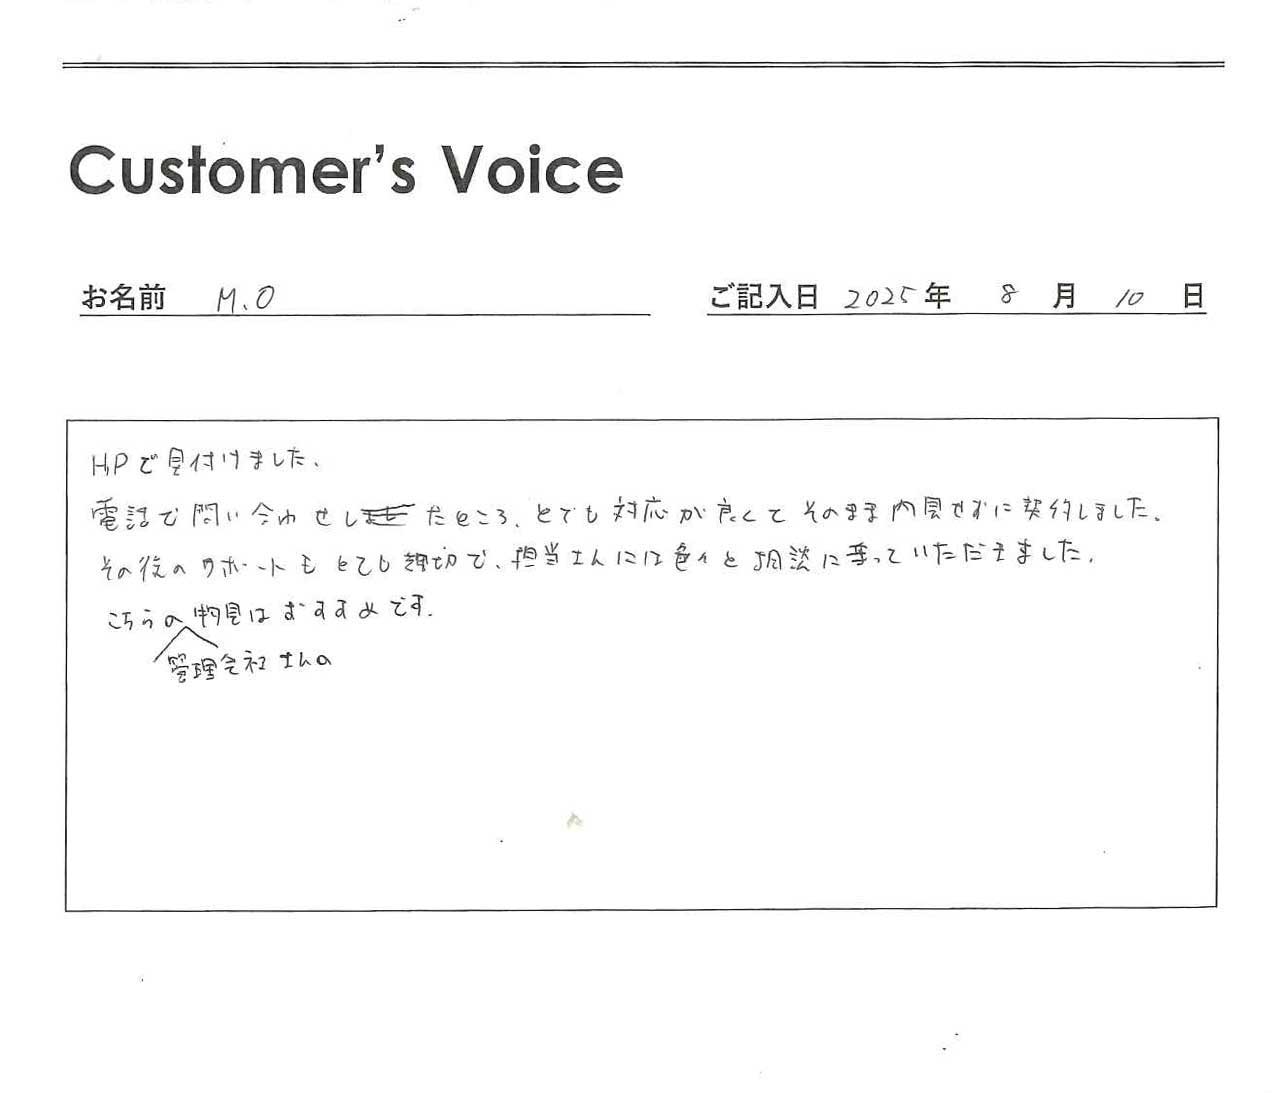 Customer's Voice
お名前 M.O
ご記入日 2025年 8月 10日
HPで見付けました、
電話で問い合わせしたところ、とても対応が良くてそのまま内見せずに契約しました。
その後のサポートもとても親切で、担当さんには色々と相談に乗っていただきました。
こちらの物見はおすすめです。
管理会社さんの